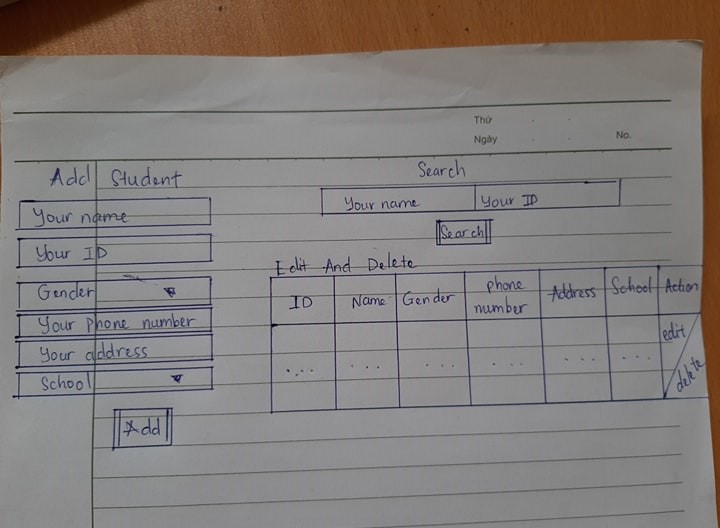 Thứ
Ngày No.
Add Student
Your name
Your ID
Gender
Your phone number
Your address
School
Add
Search
Your name Your ID
Search
Edit And Delete
ID Name Gender phone number Address School Action
.... ... ... ... ... ... edit
delete